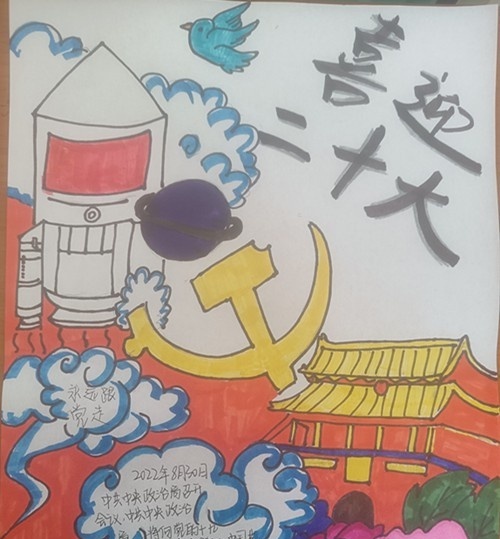 喜迎
二十大
永远跟
党走
2022年8月30日
中共中央政治局召开
会议,中共中央政治